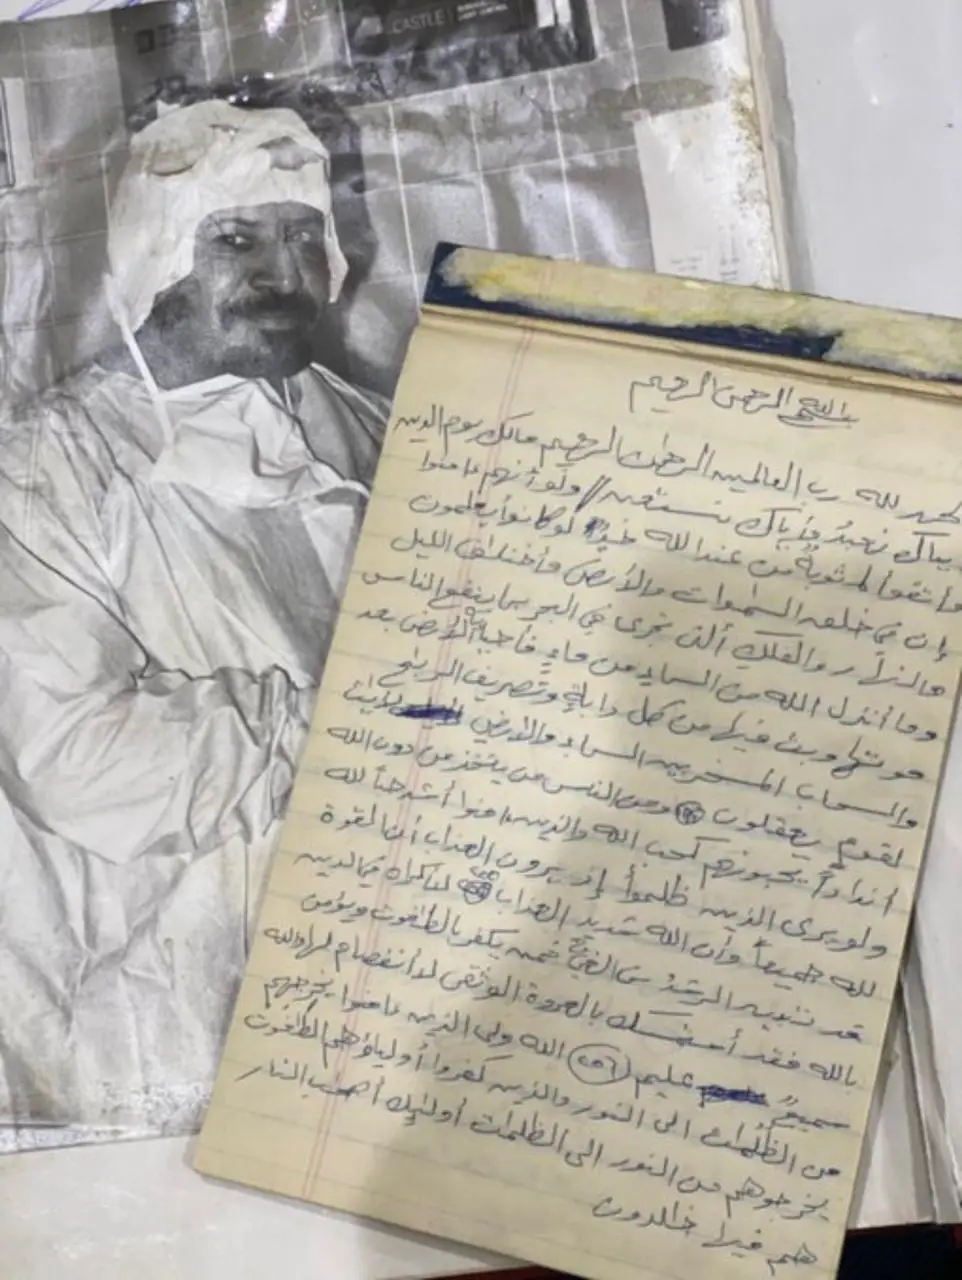 CASTLE
بسم الله الرحمن الرحيم
الحمد لله رب العالمين الرحمن الرحيم مالك يوم الدين
إياك نعبد وإياك نستعين // ولو أنهم ءامنوا
وأتقوا لمثوبة من عند الله خير لو كانوا يعلمون
إن في خلق السموات والأرض وأختلف الليل
والنهار والفلك ألتى تجرى في البحر بما ينفع الناس
وما أنزل الله من السماء من ماء فأحيا به الأرض بعد
موتها وبث فيها من كل دابة وتصريف الريح
والسحاب المسخر بين السماء والأرض لأيت
لقوم يعقلون ومن الناس من يتخذ من دون الله
أنداداً يحبونهم كحب الله والذين ءامنوا أشد حباً لله
ولو يرى الذين ظلموا إذ يرون العذاب أن القوة
لله جميعاً وأن الله شديد العذاب لا إكراه في الدين
قد تبين الرشد من الغي فمن يكفر بالطاغوت ويؤمن
بالله فقد أستمسك بالعروة الوثقى لا أنفصام لها والله
سميع عليم (٢٥٦) الله ولى الذين ءامنوا يخرجهم
من الظلمات الى النور والذين كفروا أولياؤهم الطاغوت
يخرجوهم من النور الى الظلمات أولئك أصحب النار
هم فيها خالدون